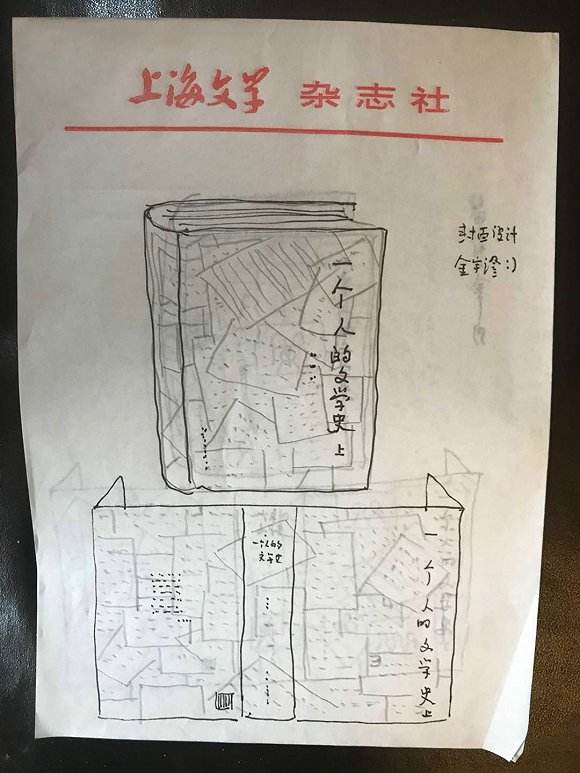 上海文学 杂志社
封面设计
金宇澄:)
一个人的文学史 上
一个人的
文学史
一个人的文学史 上